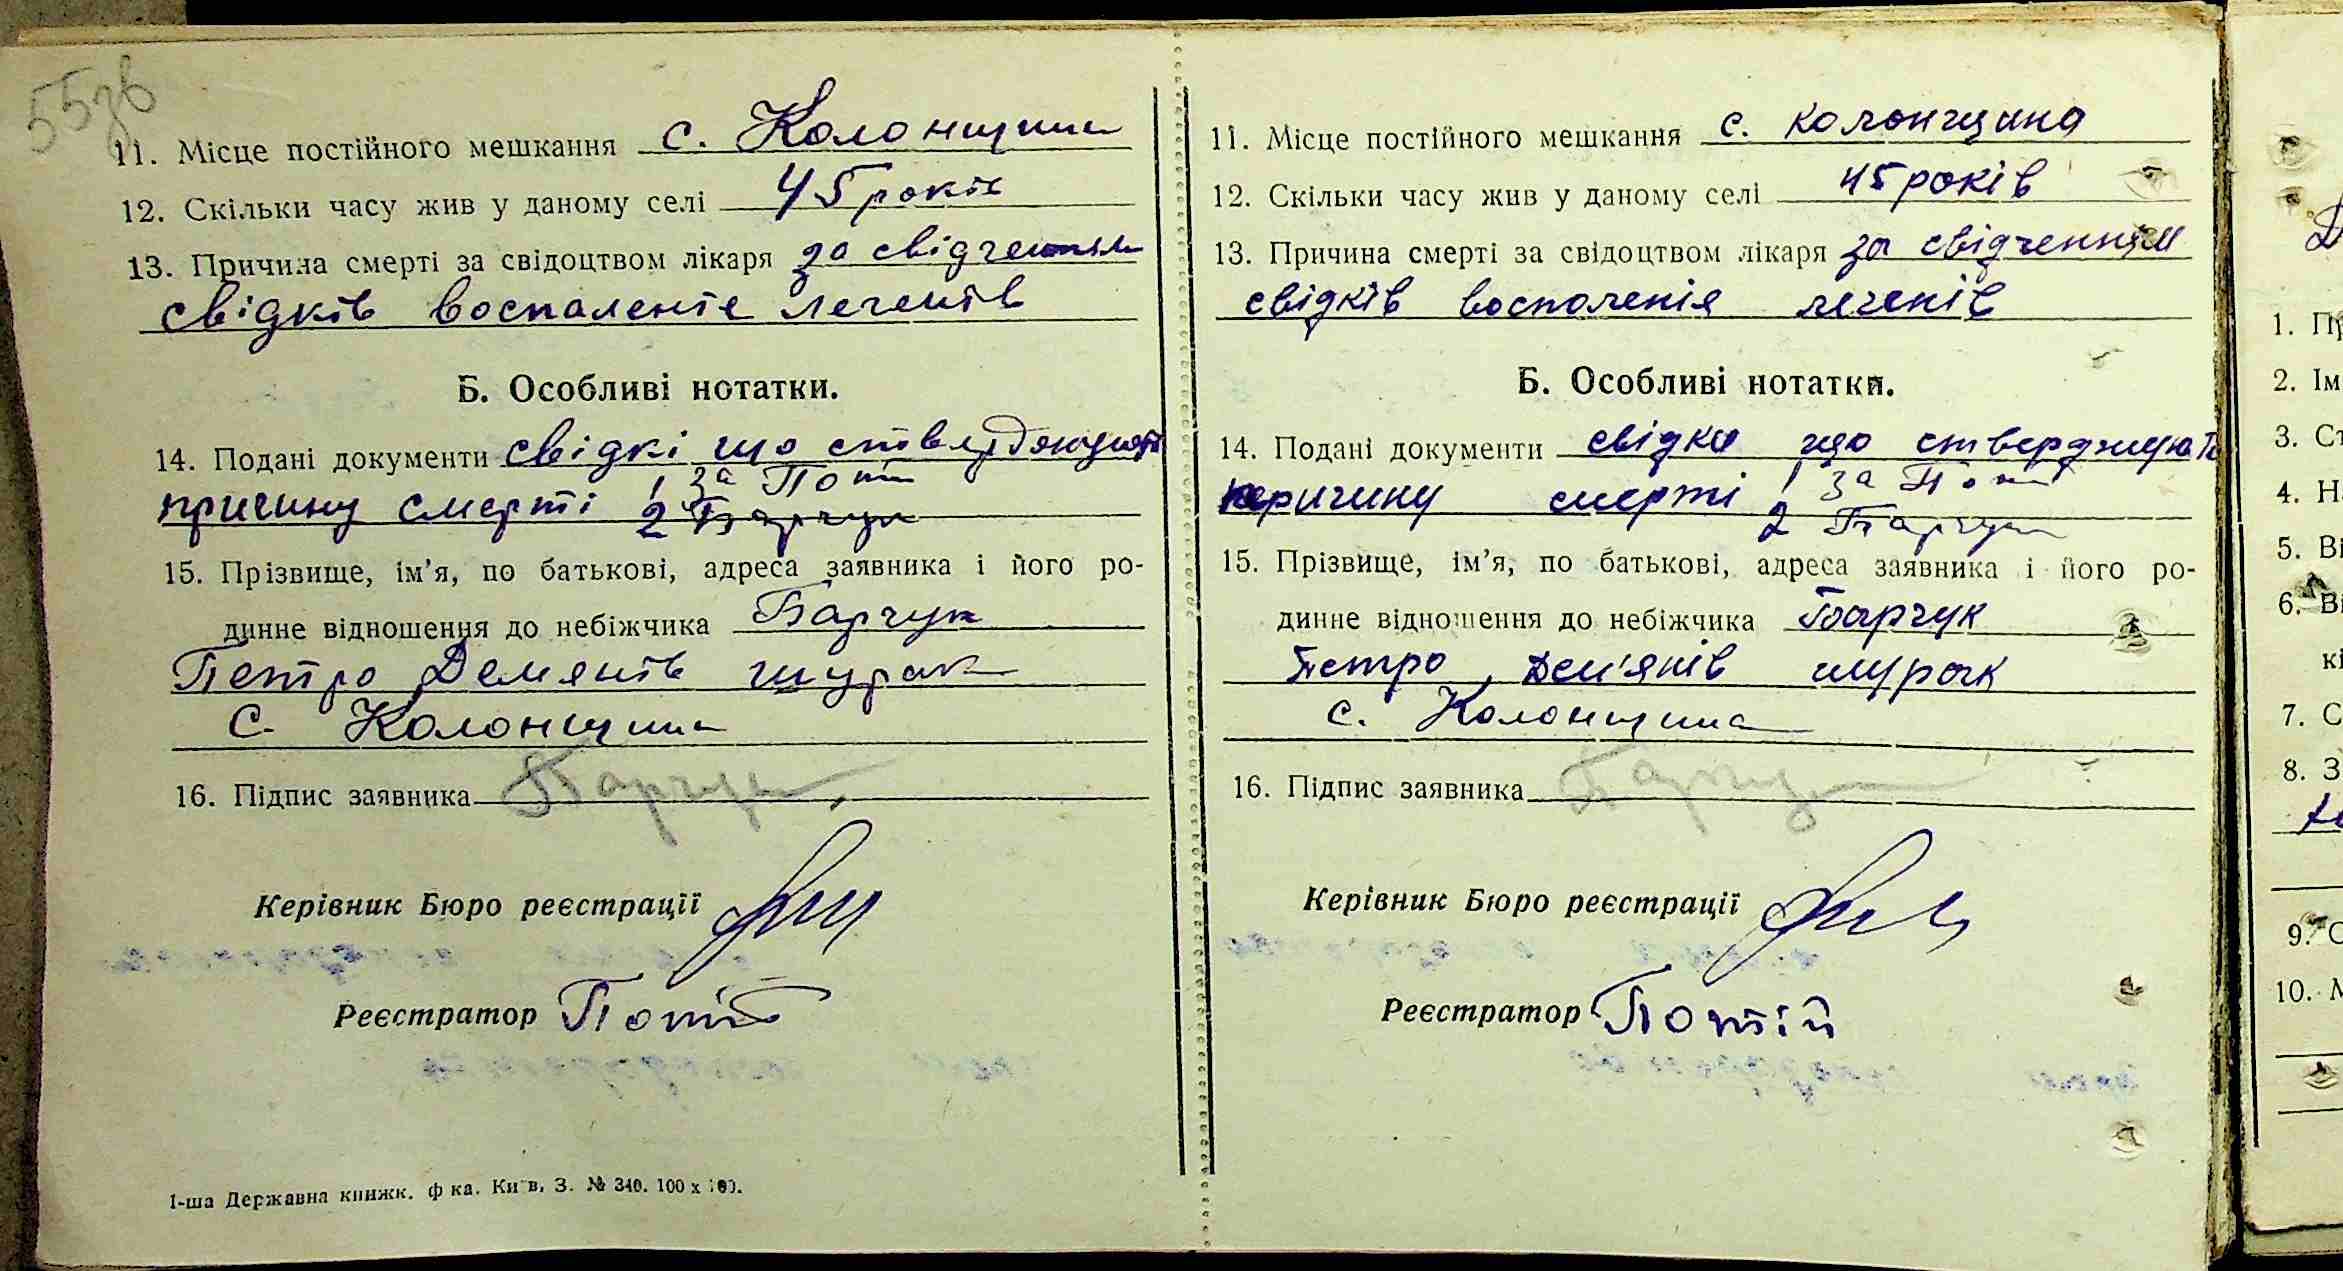 55зв
11. Місце постійного мешкання с. Колонщина
12. Скільки часу жив у даному селі 45 років
13. Причина смерті за свідоцтвом лікаря за свідченням
свідків воспаленіє легенів
Б. Особливі нотатки.
14. Подані документи свідкі що стверджують
причину смерті 1 за Потій
2 Барчук
15. Прізвище, ім'я, по батькові, адреса заявника і його ро-
динне відношення до небіжчика Барчук
Петро Демянів шурак
с. Колонщина
16. Підпис заявника Барчук
Керівник Бюро реєстрації
Реєстратор Потій
І-ша Державна книжк. ф ка. Київ, З. № 340. 100 х 100.
11. Місце постійного мешкання с. Колонщина
12. Скільки часу жив у даному селі 45 років
13. Причина смерті за свідоцтвом лікаря за свідченням
свідків воспаленія легенів
Б. Особливі нотатки.
14. Подані документи свідки що стверджують
причину смерті 1 за Потій
2 Барчук
15. Прізвище, ім'я, по батькові, адреса заявника і його ро-
динне відношення до небіжчика Барчук
Петро Дем'янів шурак
с. Колонщина
16. Підпис заявника Барчук
Керівник Бюро реєстрації
Реєстратор Потій
1. Пр
2. Ім
3. Ст
4. Н
5. Ві
6. Ві
кі
7. С
8. З
9. С
10. М